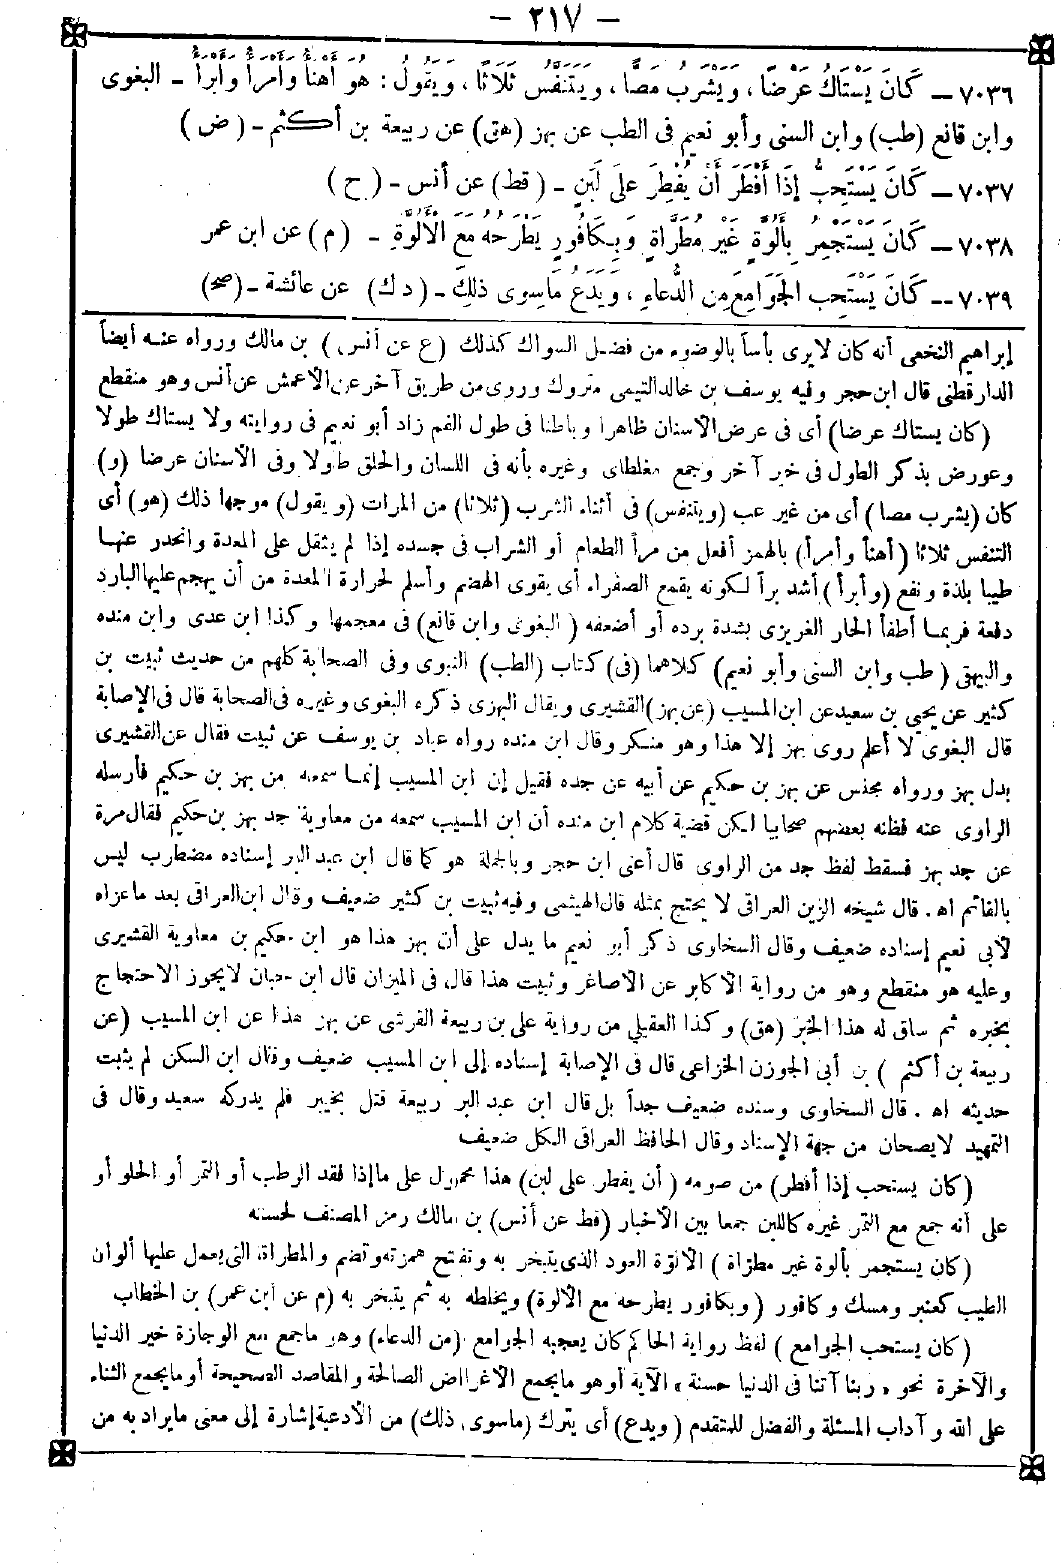 - ٢١٧ -
٧٠٣٦ - كَانَ يَسْتَاكُ عَرْضًا، وَيَشْرَبُ مَصًّا، وَيَتَنَفَّسُ ثَلَاثًا، وَيَقُولُ: هُوَ أَهْنَأُ وَأَمْرَأُ وَأَبْرَأُ - البغوى
وابن قانع (طب) وابن السنى وأبو نعيم فى الطب عن بهز (هق) عن ربيعة بن أكثم - (ض)
٧٠٣٧ - كَانَ يَسْتَحِبُّ إِذَا أَفْطَرَ أَنْ يُفْطِرَ عَلَى لَبَنٍ - (قط) عن أنس - (ح)
٧٠٣٨ - كَانَ يَسْتَجْمِرُ بِأَلُوَّةٍ غَيْرِ مُطَرَّاةٍ وَبِكَافُورٍ يَطْرَحُهُ مَعَ الْأَلُوَّةِ - (م) عن ابن عمر
٧٠٣٩ - كَانَ يَسْتَحِبُّ الْجَوَامِعَ مِنَ الدُّعَاءِ، وَيَدَعُ مَاسِوَى ذٰلِكَ - (د ك) عن عائشة - (صح)
إبراهيم النخعى أنه كان لايرى بأسا بالوضوء من فضل السواك كذلك (ع عن أنس) بن مالك ورواه عنه أيضاً
الدارقطنى قال ابن حجر وفيه يوسف بن خالد التيمى متروك وروى من طريق آخر عن الأعمش عن أنس وهو منقطع
(كان يستاك عرضا) أى فى عرض الأسنان ظاهرا وباطنا فى طول الفم زاد أبو نعيم فى روايته ولا يستاك طولا
وعورض بذكر الطول فى خبر آخر وجمع مغلطاى وغيره بأنه فى اللسان والحلق طولا وفى الأسنان عرضا (و)
كان (يشرب مصا) أى من غير عب (ويتنفس) فى أثناء الشرب (ثلاثا) من المرات (ويقول) موجها ذلك (هو) أى
التنفس ثلاثا (أهنأ وأمرأ) بالهمز أفعل من مرأ الطعام أو الشراب فى جسده إذا لم يثقل على المعدة وانحدر عنها
طيبا بلذة ونفع (وأبرأ) أشد برأ لكونه يقمع الصفراء أى يقوى الهضم وأسلم لحرارة المعدة من أن يهجم عليها البارد
دفعة فربما أطفأ الحار الغريزى بشدة برده أو أضعفه (البغوى وابن قانع) فى معجمها وكذا ابن عدى وابن منده
والبيهقى (طب وابن السنى وأبو نعيم) كلاهما (فى) كتاب (الطب) النبوى وفى الصحابة كلهم من حديث ثبيت بن
كثير عن يحيى بن سعيد عن ابن المسيب (عن بهز) القشيرى ويقال البهزى ذكره البغوى وغيره فى الصحابة قال فى الإصابة
قال البغوى لا أعلم روى بهز إلا هذا وهو منكر وقال ابن منده رواه عباد بن يوسف عن ثبيت فقال عن القشيرى
بدل بهز ورواه مخنس عن بهز بن حكيم عن أبيه عن جده فقيل إن ابن المسيب إنما سمعه من بهز بن حكيم فأرسله
الراوى عنه فظنه بعضهم صحابيا لكن قضية كلام ابن منده أن ابن المسيب سمعه من معاوية جد بهز بن حكيم فقال مرة
عن جد بهز فسقط لفظ جد من الراوى قال أعنى ابن حجر وبالجملة هو كما قال ابن عبد البر إسناده مضطرب ليس
بالقائم اه. قال شيخه الزين العراقى لا يحتج بمثله قال الهيثمى وفيه ثبيت بن كثير ضعيف وقال ابن العراقى بعد ماعزاه
لأبى نعيم إسناده ضعيف وقال السخاوى ذكر أبو نعيم ما يدل على أن بهز هذا هو ابن حكيم بن معاوية القشيرى
وعليه هو منقطع وهو من رواية الأكابر عن الأصاغر وثبيت هذا قال فى الميزان قال ابن حبان لايجوز الاحتجاج
بخبره ثم ساق له هذا الخبر (هق) وكذا العقيلى من رواية على بن ربيعة القرشى عن بهز هذا عن ابن المسيب (عن
ربيعة بن أكثم) بن أبى الجوزن الخزاعى قال فى الإصابة إسناده إلى ابن المسيب ضعيف وقال ابن السكن لم يثبت
حديثه اه. قال السخاوى وسنده ضعيف جداً بل قال ابن عبد البر ربيعة قتل بخيبر فلم يدركه سعيد وقال فى
التمهيد لايصحان من جهة الإسناد وقال الحافظ العراقى الكل ضعيف
(كان يستحب إذا أفطر) من صومه (أن يفطر على لبن) هذا محمول على ماإذا فقد الرطب أو التمر أو الحلو أو
على أنه جمع مع التمر غيره كاللبن جمعا بين الأخبار (قط عن أنس) بن مالك رمز المصنف لحسنه
(كان يستجمر بألوة غير مطراة) الألوة العود الذى يتبخر به وتفتح همزته وتضم والمطراة التى يعمل عليها ألوان
الطيب كعنبر ومسك وكافور (وبكافور يطرحه مع الألوة) ويخلطه به ثم يتبخر به (م عن ابن عمر) بن الخطاب
(كان يستحب الجوامع) لفظ رواية الحاكم كان يعجبه الجوامع (من الدعاء) وهو ماجمع مع الوجازة خير الدنيا
والآخرة نحو «ربنا آتنا فى الدنيا حسنة» الآية أو هو مايجمع الأغراض الصالحة والمقاصد الصحيحة أو مايجمع الثناء
على الله وآداب المسئلة والفضل للمتقدم (ويدع) أى يترك (ماسوى ذلك) من الأدعية إشارة إلى معنى مايراد به من